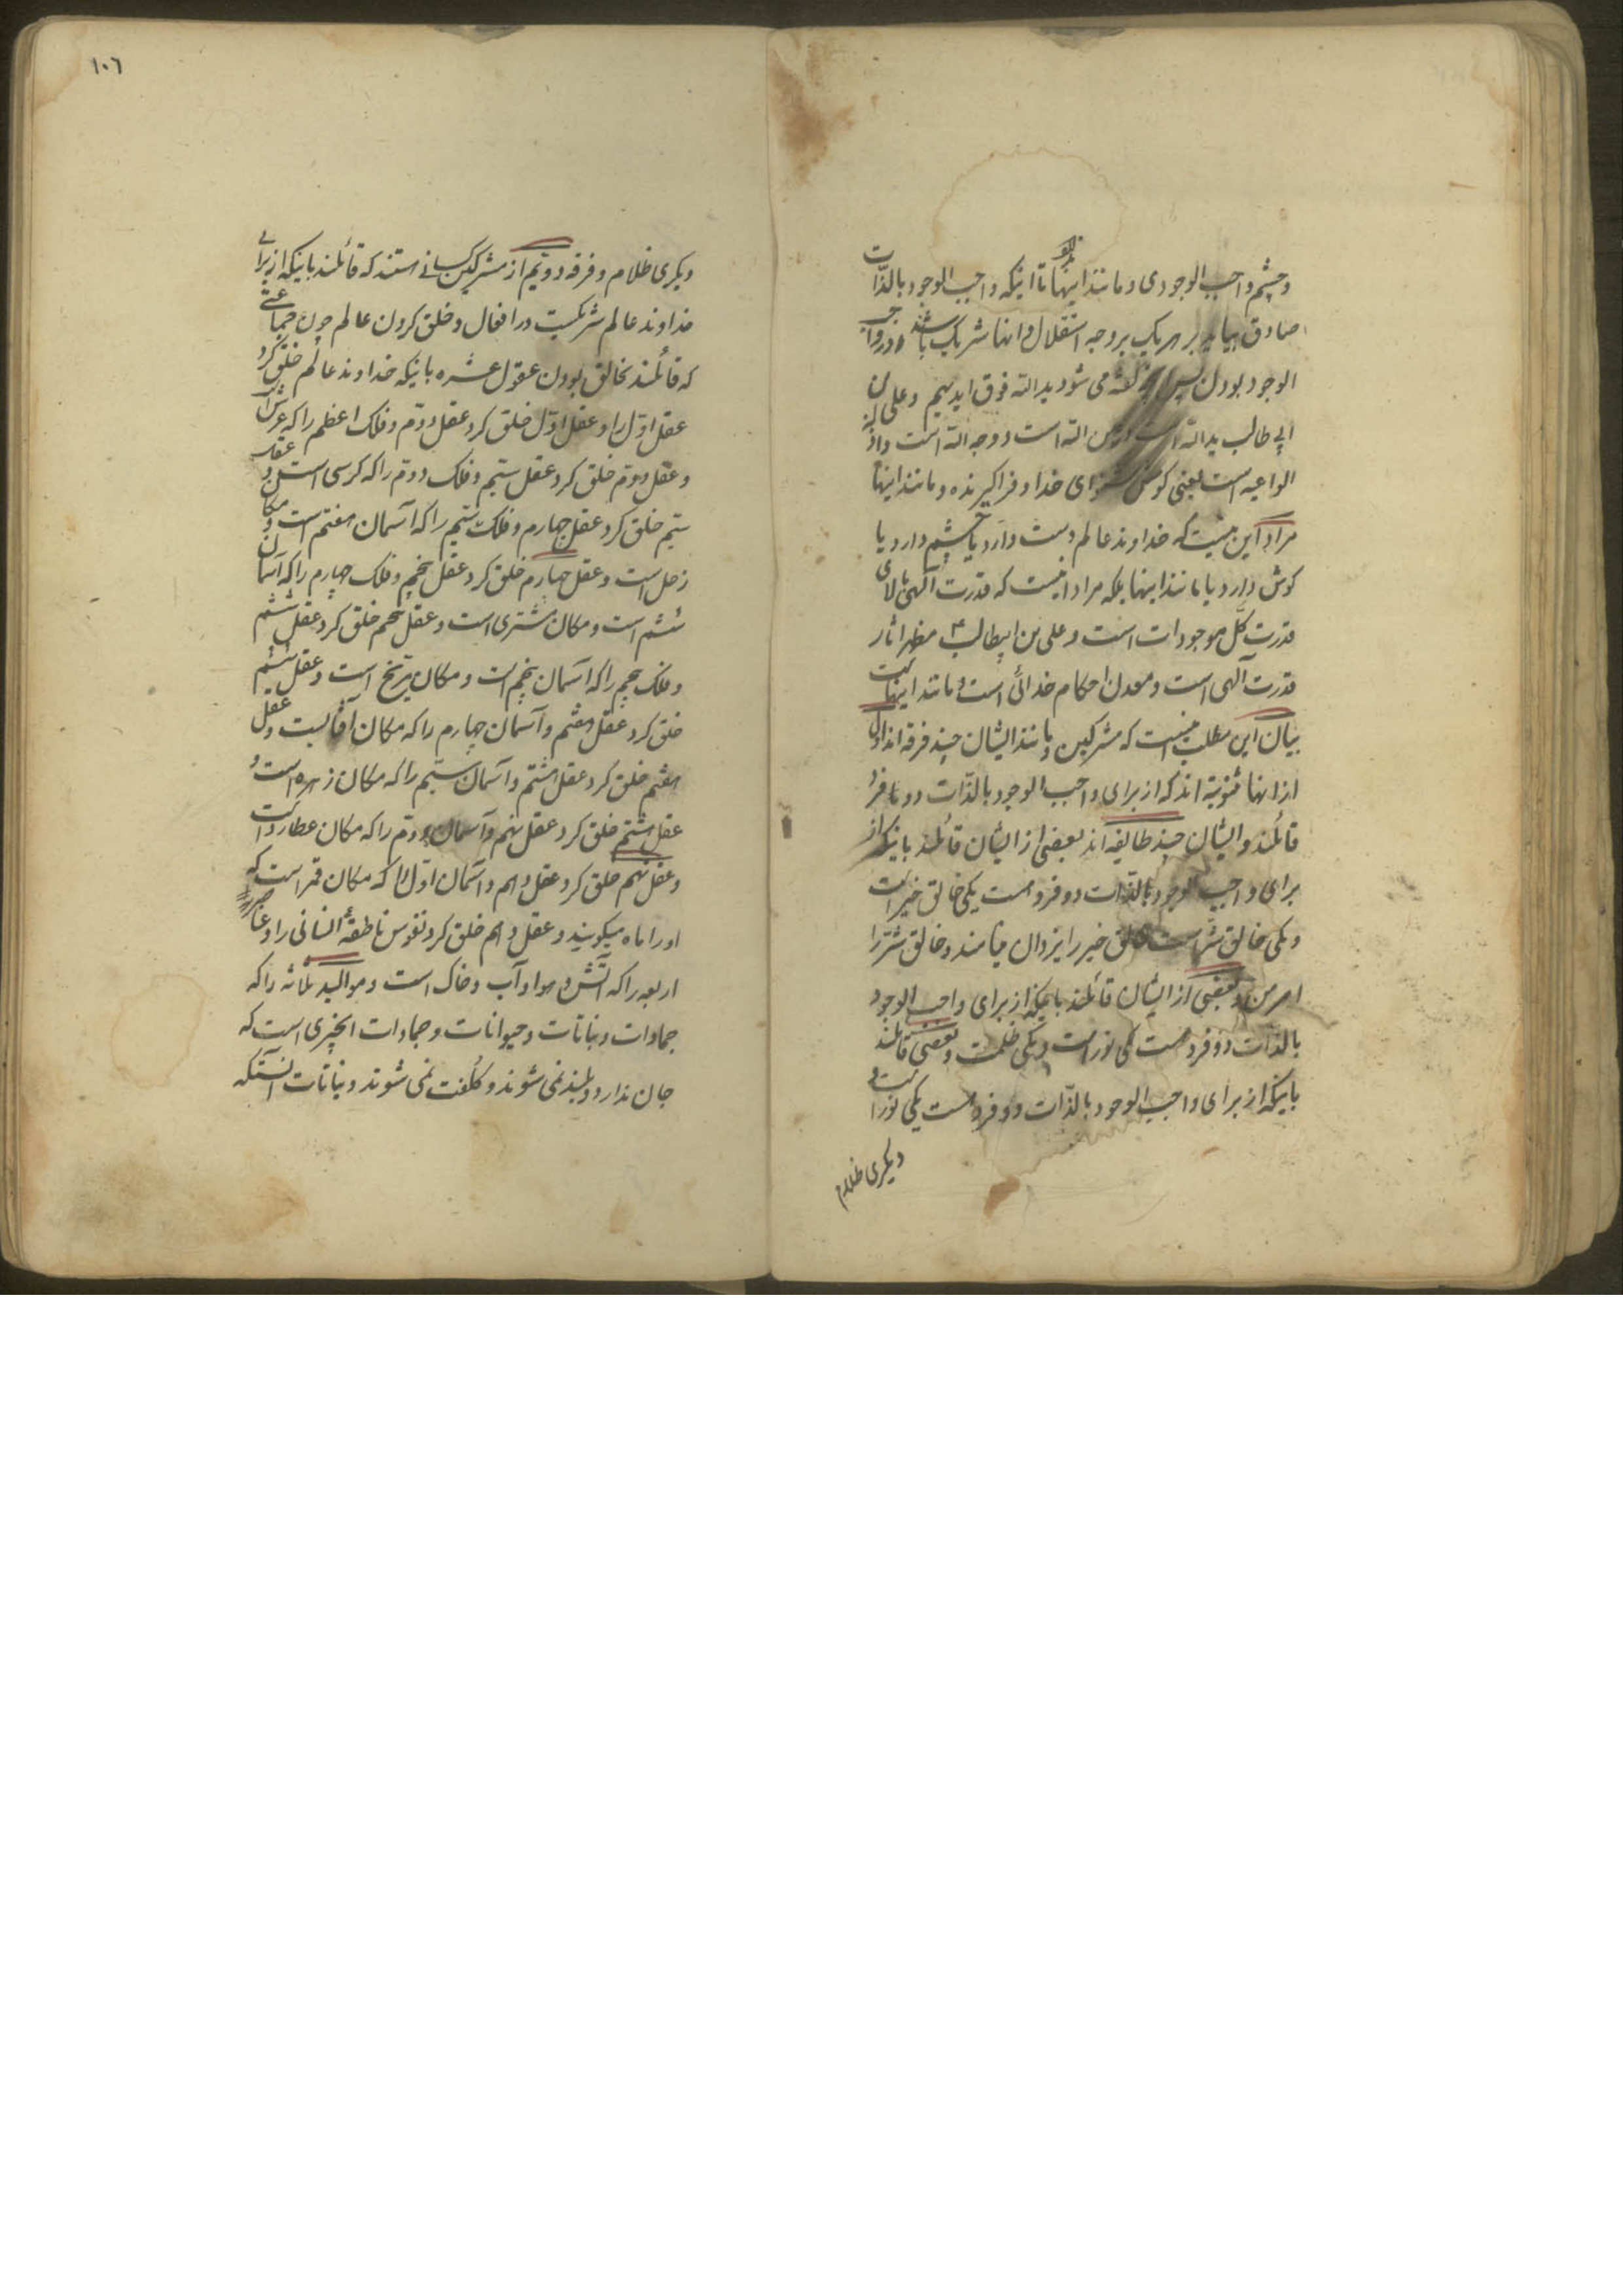 وچشم واجب الوجودی و مانند اینها تا اینکه واجب الوجود بالذات
صادق بیاید بر هر یک بر وجه استقلال و انها شریک باشند در واجب
الوجود بودن پس گفته می شود ید الله فوق ایدیهم و علی بن
ابی طالب ید الله است و عین الله است و وجه الله است و اذن
الواعیه است یعنی کوش شنوای خدا و فراکیرنده و مانند اینها
مراد این نیست که خداوند عالم دست دارد یا چشم دارد یا
کوش دارد یا مانند اینها بلکه مراد اینست که قدرت الهی بالای
قدرت کل موجودات است و علی بن ابیطالب ۴ مظهر اثار
قدرت الهی است و معدن احکام خدائی است و مانند اینهاست
بیان این مطلب اینست که مشرکین و مانند ایشان چند فرقه اند اول
از انها ثنویه اند که از برای واجب الوجود بالذات دو تا فرد
قائلند و ایشان چند طایفه اند بعضی از ایشان قائلند باینکه از
برای واجب الوجود بالذات دو فرد هست یکی خالق خیر است
و یکی خالق شر است خالق خیر را یزدان مینامند و خالق شر را
اهرمن و بعضی از ایشان قائلند باینکه از برای واجب الوجود
بالذات دو فرد هست یکی نور است و یکی ظلمت و بعضی قائلند
باینکه از برای واجب الوجود بالذات دو فرد هست یکی نور است و
دیکری ظلام
۱۰٦
دیکری ظلام و فرقه دویم از مشرکین کسانی هستند که قائلند باینکه از برای
خداوند عالم شریکست در افعال و خلق کردن عالم چون جماعتی
که قائلند بخالق بودن عقول عشره باینکه خداوند عالم خلق کرد
عقل اول را و عقل اول خلق کرد عقل دوم و فلک اعظم را که عرش است
و عقل دوم خلق کرد عقل سیم و فلک دوم را که کرسی است و عقل
سیم خلق کرد عقل چهارم و فلک سیم را که آسمان هفتم است و مکان
زحل است و عقل چهارم خلق کرد عقل پنجم و فلک چهارم را که آسمان
ششم است و مکان مشتری است و عقل پنجم خلق کرد عقل ششم
و فلک پنجم را که آسمان پنجم است و مکان مریخ است و عقل ششم
خلق کرد عقل هفتم و آسمان چهارم را که مکان آفتابست و عقل
هفتم خلق کرد عقل هشتم و آسمان سیم را که مکان زهره است و
عقل هشتم خلق کرد عقل نهم و آسمان دوم را که مکان عطارد است
و عقل نهم خلق کرد عقل دهم و آسمان اول را که مکان قمر است که
او را ماه میکویند و عقل دهم خلق کرد نفوس ناطقهٔ انسانی را و عناصر
اربعه را که آتش و هوا و آب و خاک است و موالید ثلاثه را که
جمادات و نباتات و حیوانات و جمادات انچیزی است که
جان ندارد و بلند نمی شوند و کلفت نمی شوند و نباتات انستکه